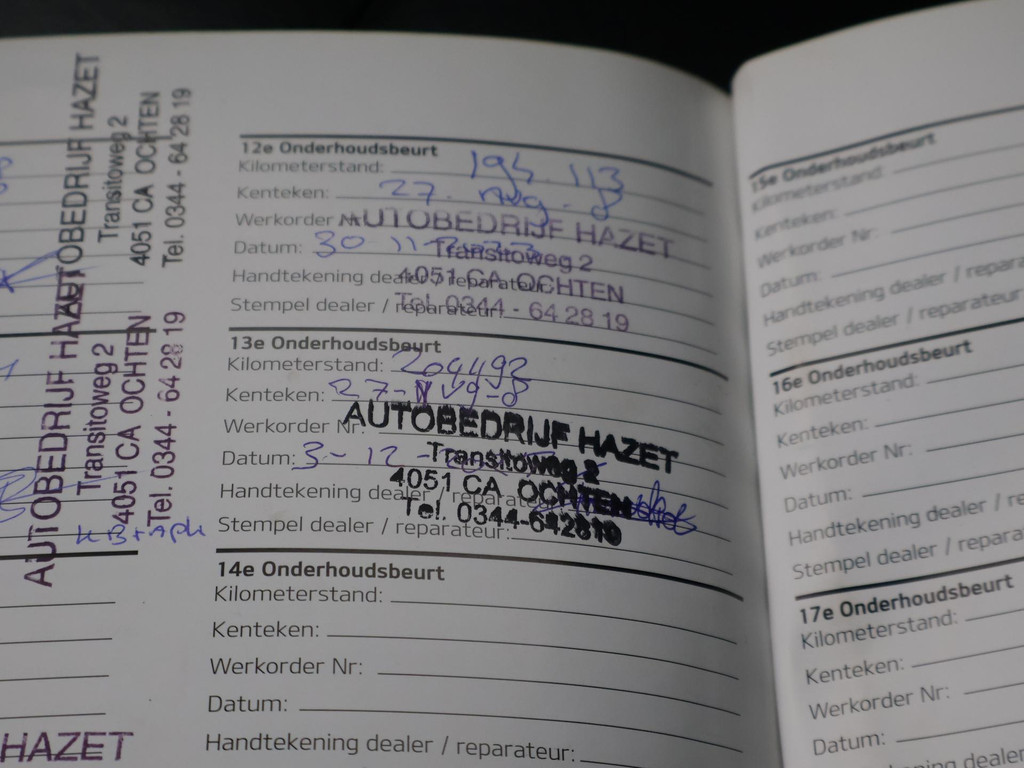 AUTOBEDRIJF HAZET
Transitoweg 2
4051 CA OCHTEN
Tel. 0344 - 64 28 19
AUTOBEDRIJF HAZET
Transitoweg 2
4051 CA OCHTEN
Tel. 0344 - 64 28 19
HAZET
12e Onderhoudsbeurt
Kilometerstand: 195.113
Kenteken: 27.
Werkorder
Datum: 30 11
Handtekening dealer / reparateur:
Stempel dealer / reparateur:
AUTOBEDRIJF HAZET
Transitoweg 2
4051 CA OCHTEN
Tel. 0344 - 64 28 19
13e Onderhoudsbeurt
Kilometerstand: 204492
Kenteken: 27-
Werkorder Nr:
Datum: 3-12-
Handtekening dealer / reparateur
Stempel dealer / reparateur:
AUTOBEDRIJF HAZET
Transitoweg 2
4051 CA OCHTEN
Tel. 0344-642819
14e Onderhoudsbeurt
Kilometerstand:
Kenteken:
Werkorder Nr:
Datum:
Handtekening dealer / reparateur:
15e Onderhoudsbeurt
Kilometerstand:
Kenteken:
Werkorder Nr:
Datum:
Handtekening dealer / repara
Stempel dealer / reparateur
16e Onderhoudsbeurt
Kilometerstand:
Kenteken:
Werkorder Nr:
Datum:
Handtekening dealer / re
Stempel dealer / repara
17e Onderhoudsbeurt
Kilometerstand:
Kenteken:
Werkorder Nr:
Datum:
dealer